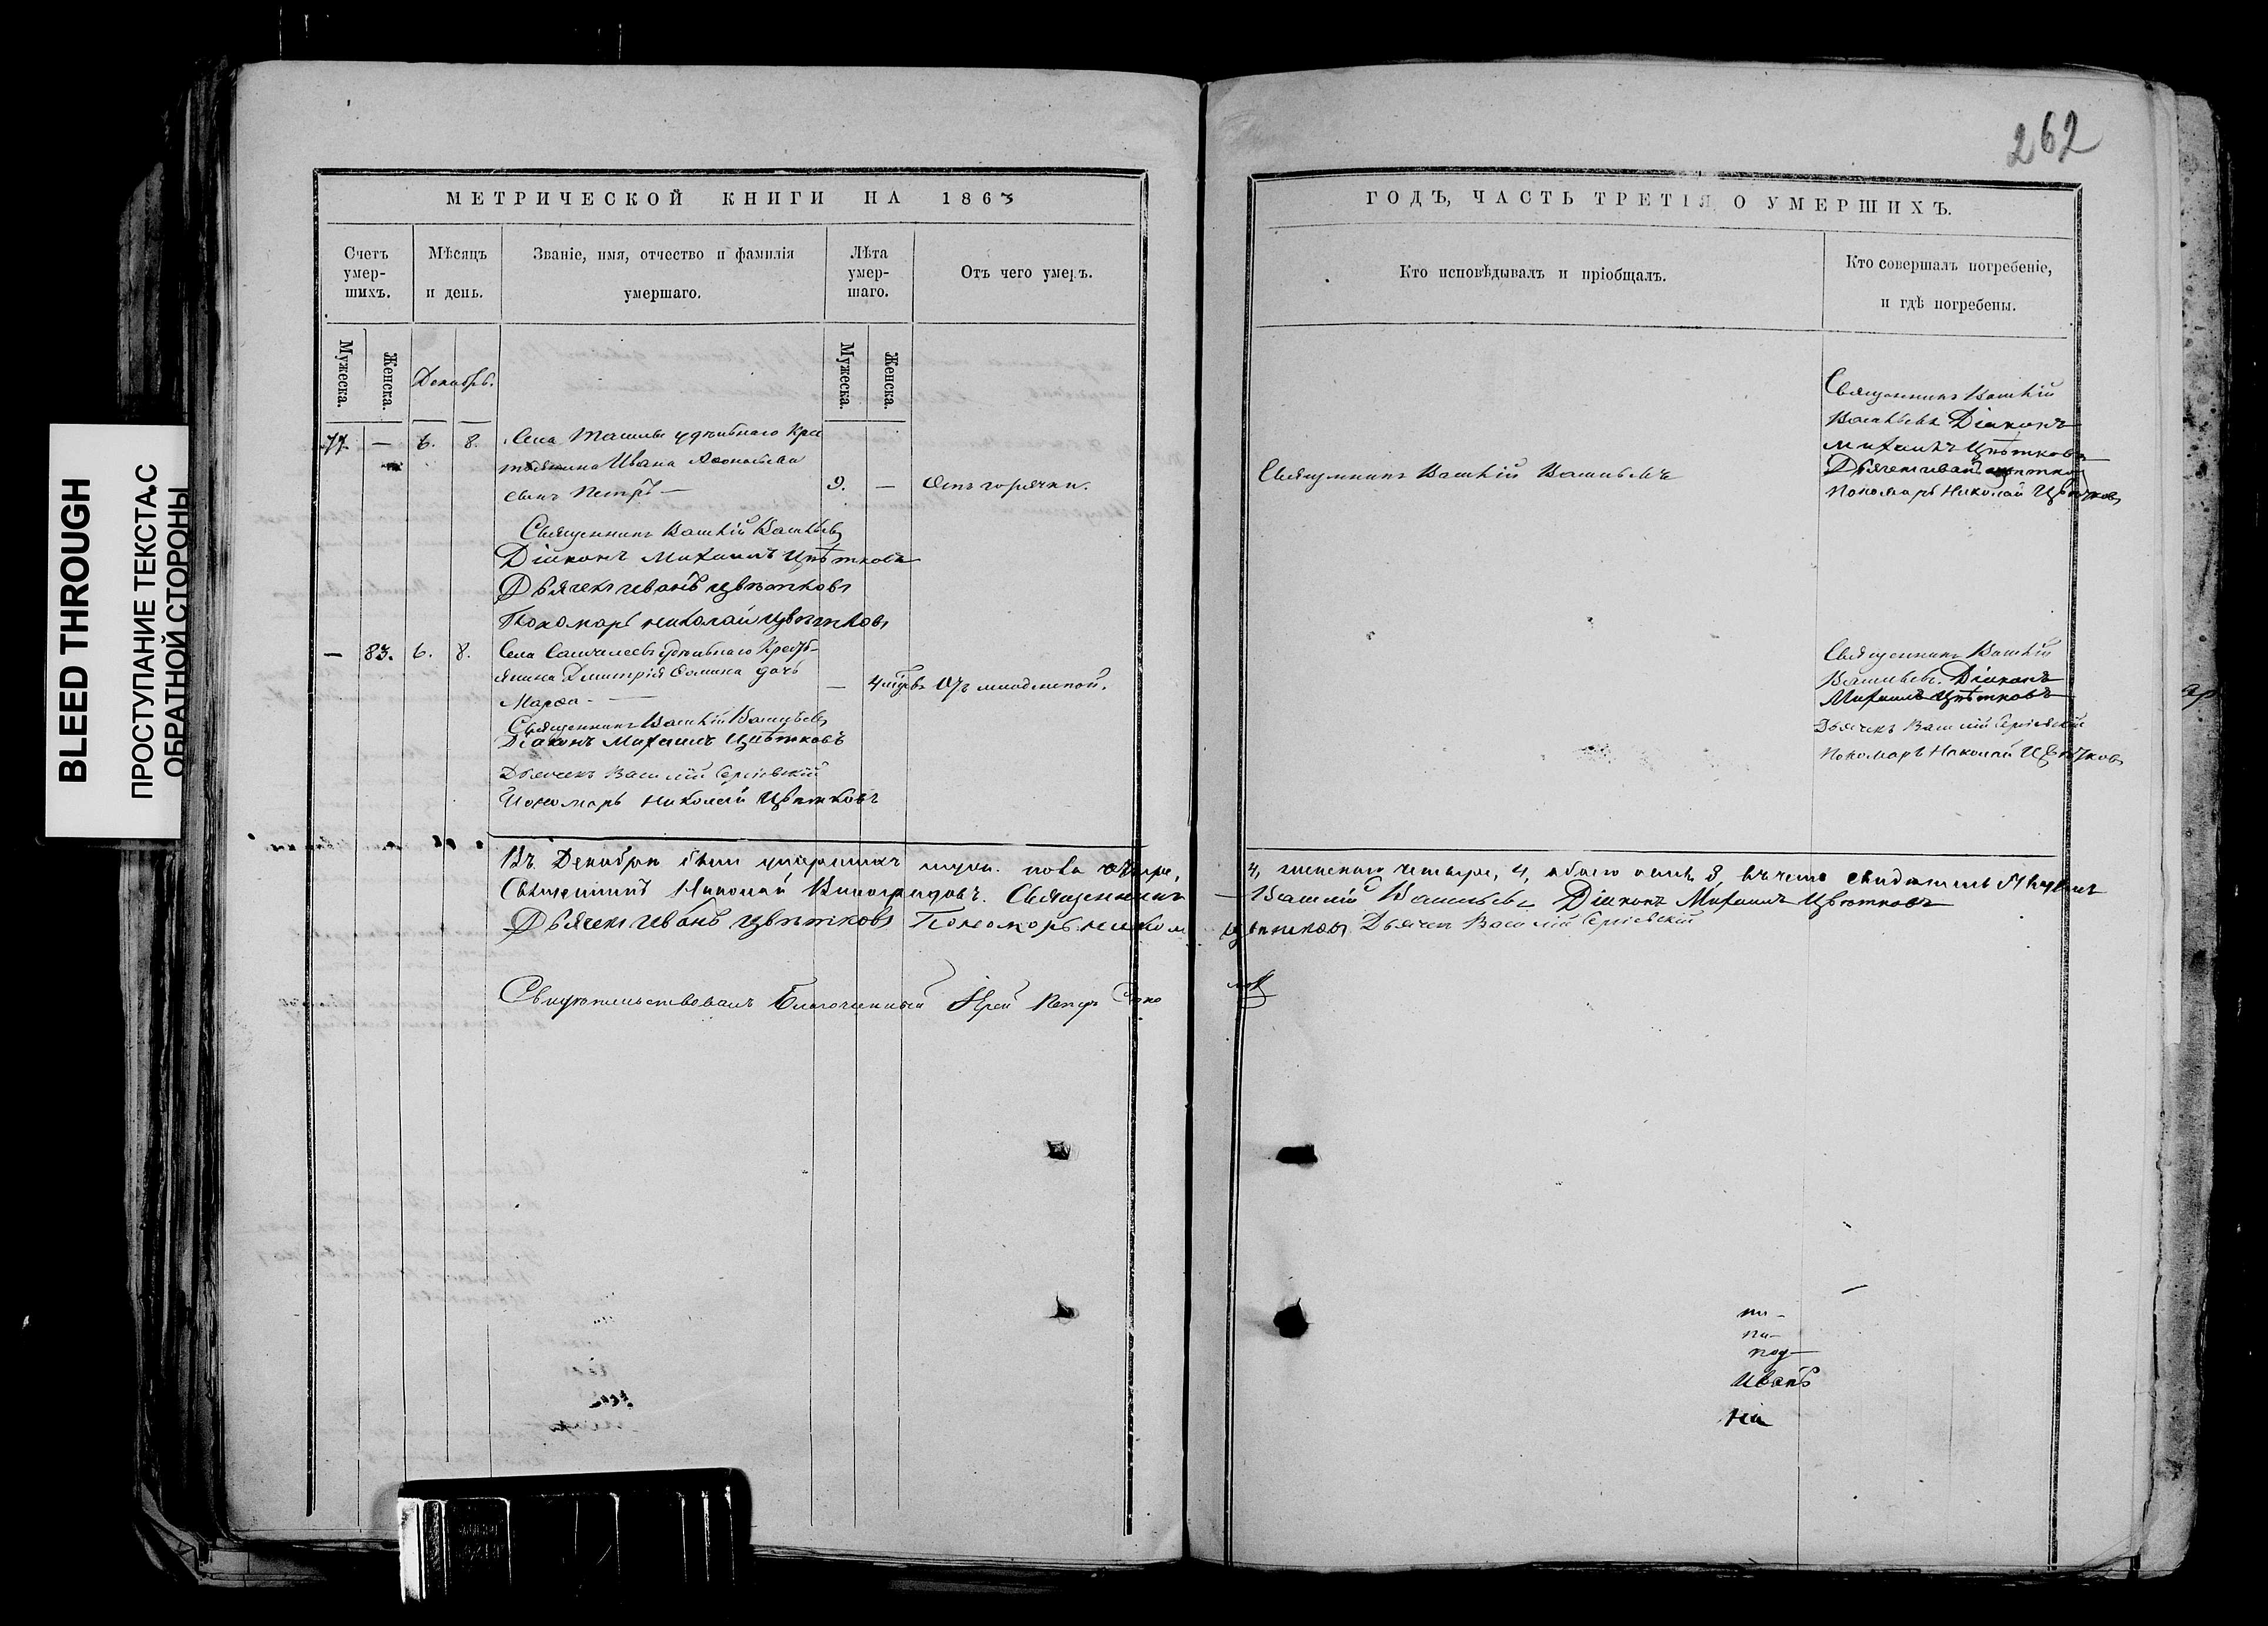 BLEED THROUGH
ПРОСТУПАНИЕ ТЕКСТА С
ОБРАТНОЙ СТОРОНЫ
262
МЕТРИЧЕСКОЙ КНИГИ НА 1863
Счетъ умер-
шихъ.
Мѣсяцъ
и день.
Званіе, имя, отчество и фамилія
умершаго.
Лѣта
умер-
шаго.
Отъ чего умеръ.
Мужеска.
Женска.
Декабрь.
Мужеска.
Женска.
77. — 6. 8. Села Ташлы удѣльнаго Крес
тьянина Ивана
сынъ Петръ — 9. — Отъ горячки.
Священникъ Василій Васильевъ
Діаконъ Михаилъ Цвѣтковъ
Дьячекъ Иванъ Цвѣтковъ
Пономарь Николай Цвѣтковъ
— 83. 6. 8. Села удѣльнаго Кресть-
янина Дмитрія Фомина дочь
Марѳа — — Отъ младенской.
Священникъ Василій Васильевъ
Діаконъ Михаилъ Цвѣтковъ
Дьячекъ Василій Сергіевскій
Пономарь Николай Цвѣтковъ
ГОДЪ, ЧАСТЬ ТРЕТІЯ О УМЕРШИХЪ.
Кто исповѣдывалъ и пріобщалъ.
Кто совершалъ погребеніе,
и гдѣ погребены.
Священникъ Василій Васильевъ
Священникъ Василій
Васильевъ Діаконъ
Михаилъ Цвѣтковъ
Дьячекъ Иванъ Цвѣтков
Пономарь Николай Цвѣтковъ
Священникъ Василій
Васильевъ. Діаконъ
Михаилъ Цвѣтковъ
Дьячекъ Василій Сергіевскій
Пономарь Николай Цвѣтковъ
Въ Декабрѣ умершихъ пола четыре, 4, женскаго четыре, 4, обоего 8, въ чемъ
Священникъ Николай Виноградовъ. Священникъ Василій Васильевъ Діаконъ Михаилъ Цвѣтковъ
Дьячекъ Иванъ Цвѣтковъ Пономорь Никол Цвѣтковъ Дьячекъ Василій Сергіевскій
Свидѣтельствовалъ Благочинный Іерей Петръ
по-
на-
под-
Иванъ
на